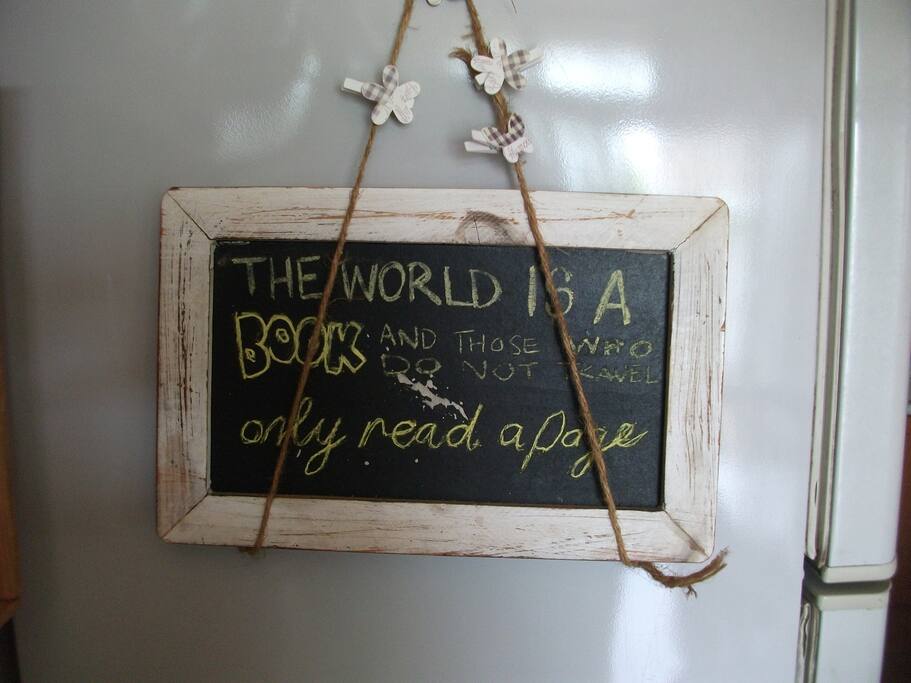 THE WORLD IS A
BOOK AND THOSE WHO
DO NOT TRAVEL
only read a page